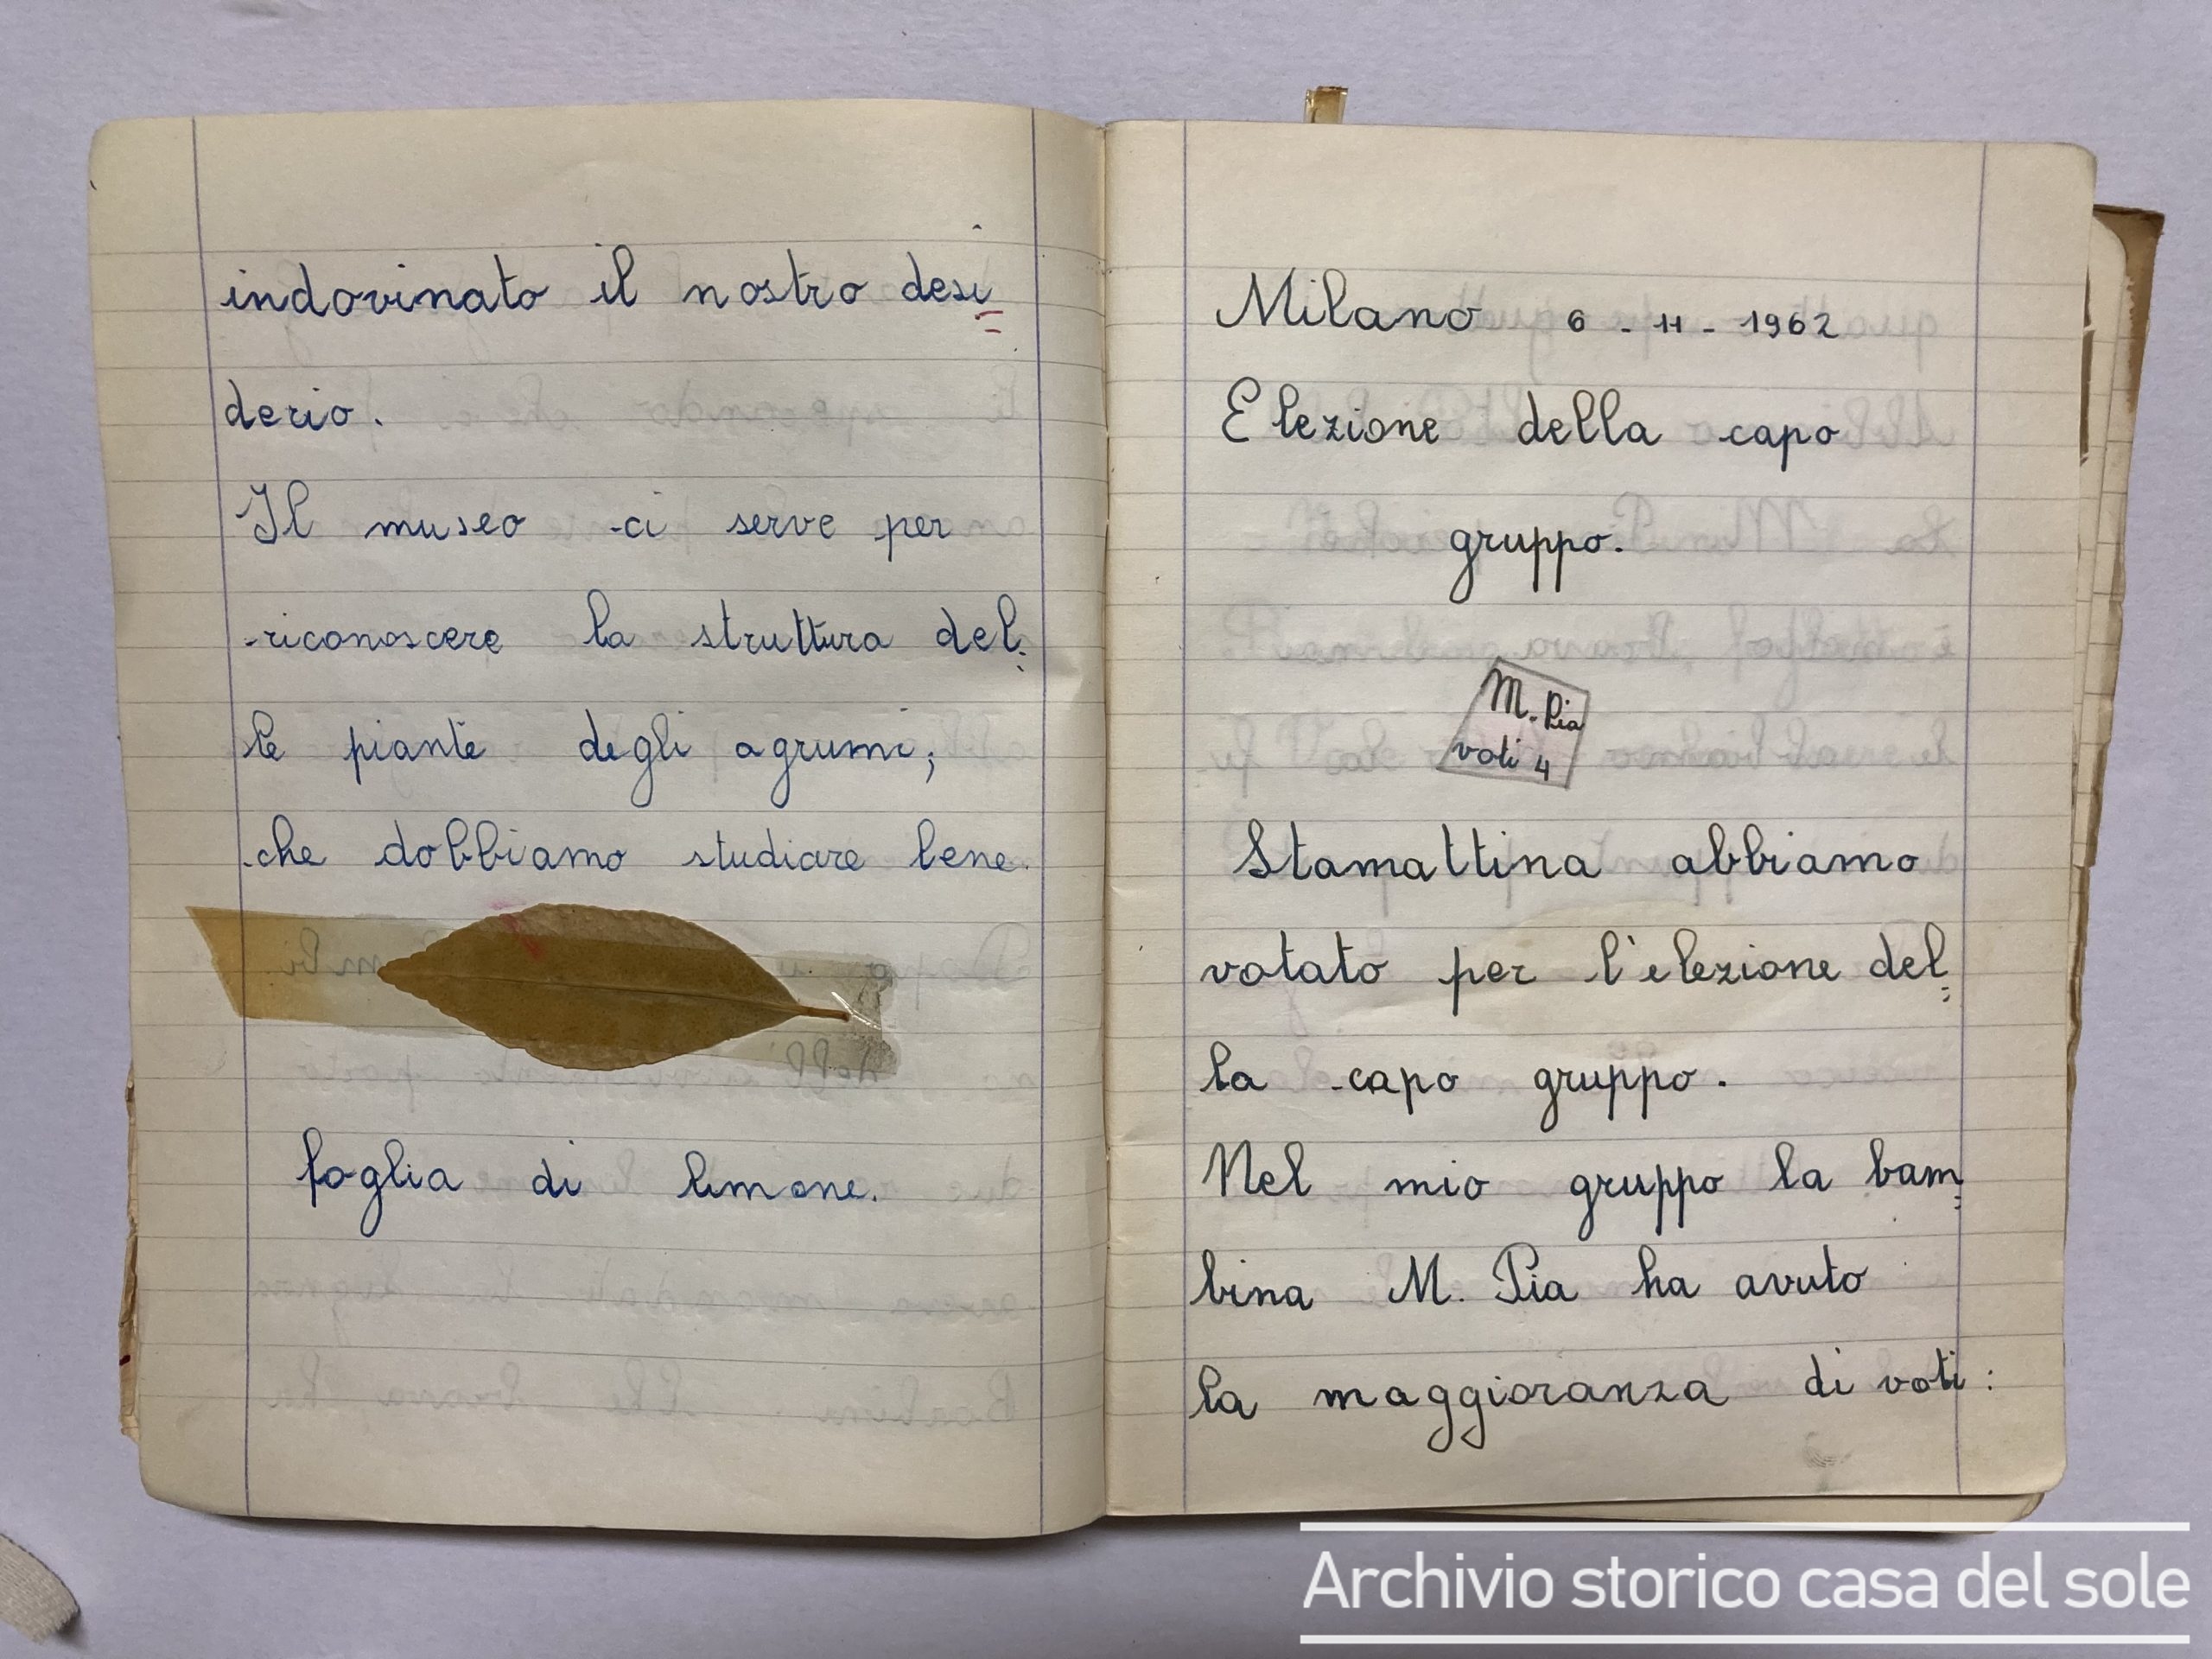 indovinato il nostro desi=
derio.
Il museo ci serve per
riconoscere la struttura del=
le piante degli agrumi;
che dobbiamo studiare bene.
foglia di limone.
Milano 6 - 11 - 1962
Elezione della capo
gruppo.
M. Pia
voti 4
Stamattina abbiamo
votato per l'elezione del=
la capo gruppo.
Nel mio gruppo la bam=
bina M. Pia ha avuto
la maggioranza di voti:
Archivio storico casa del sole